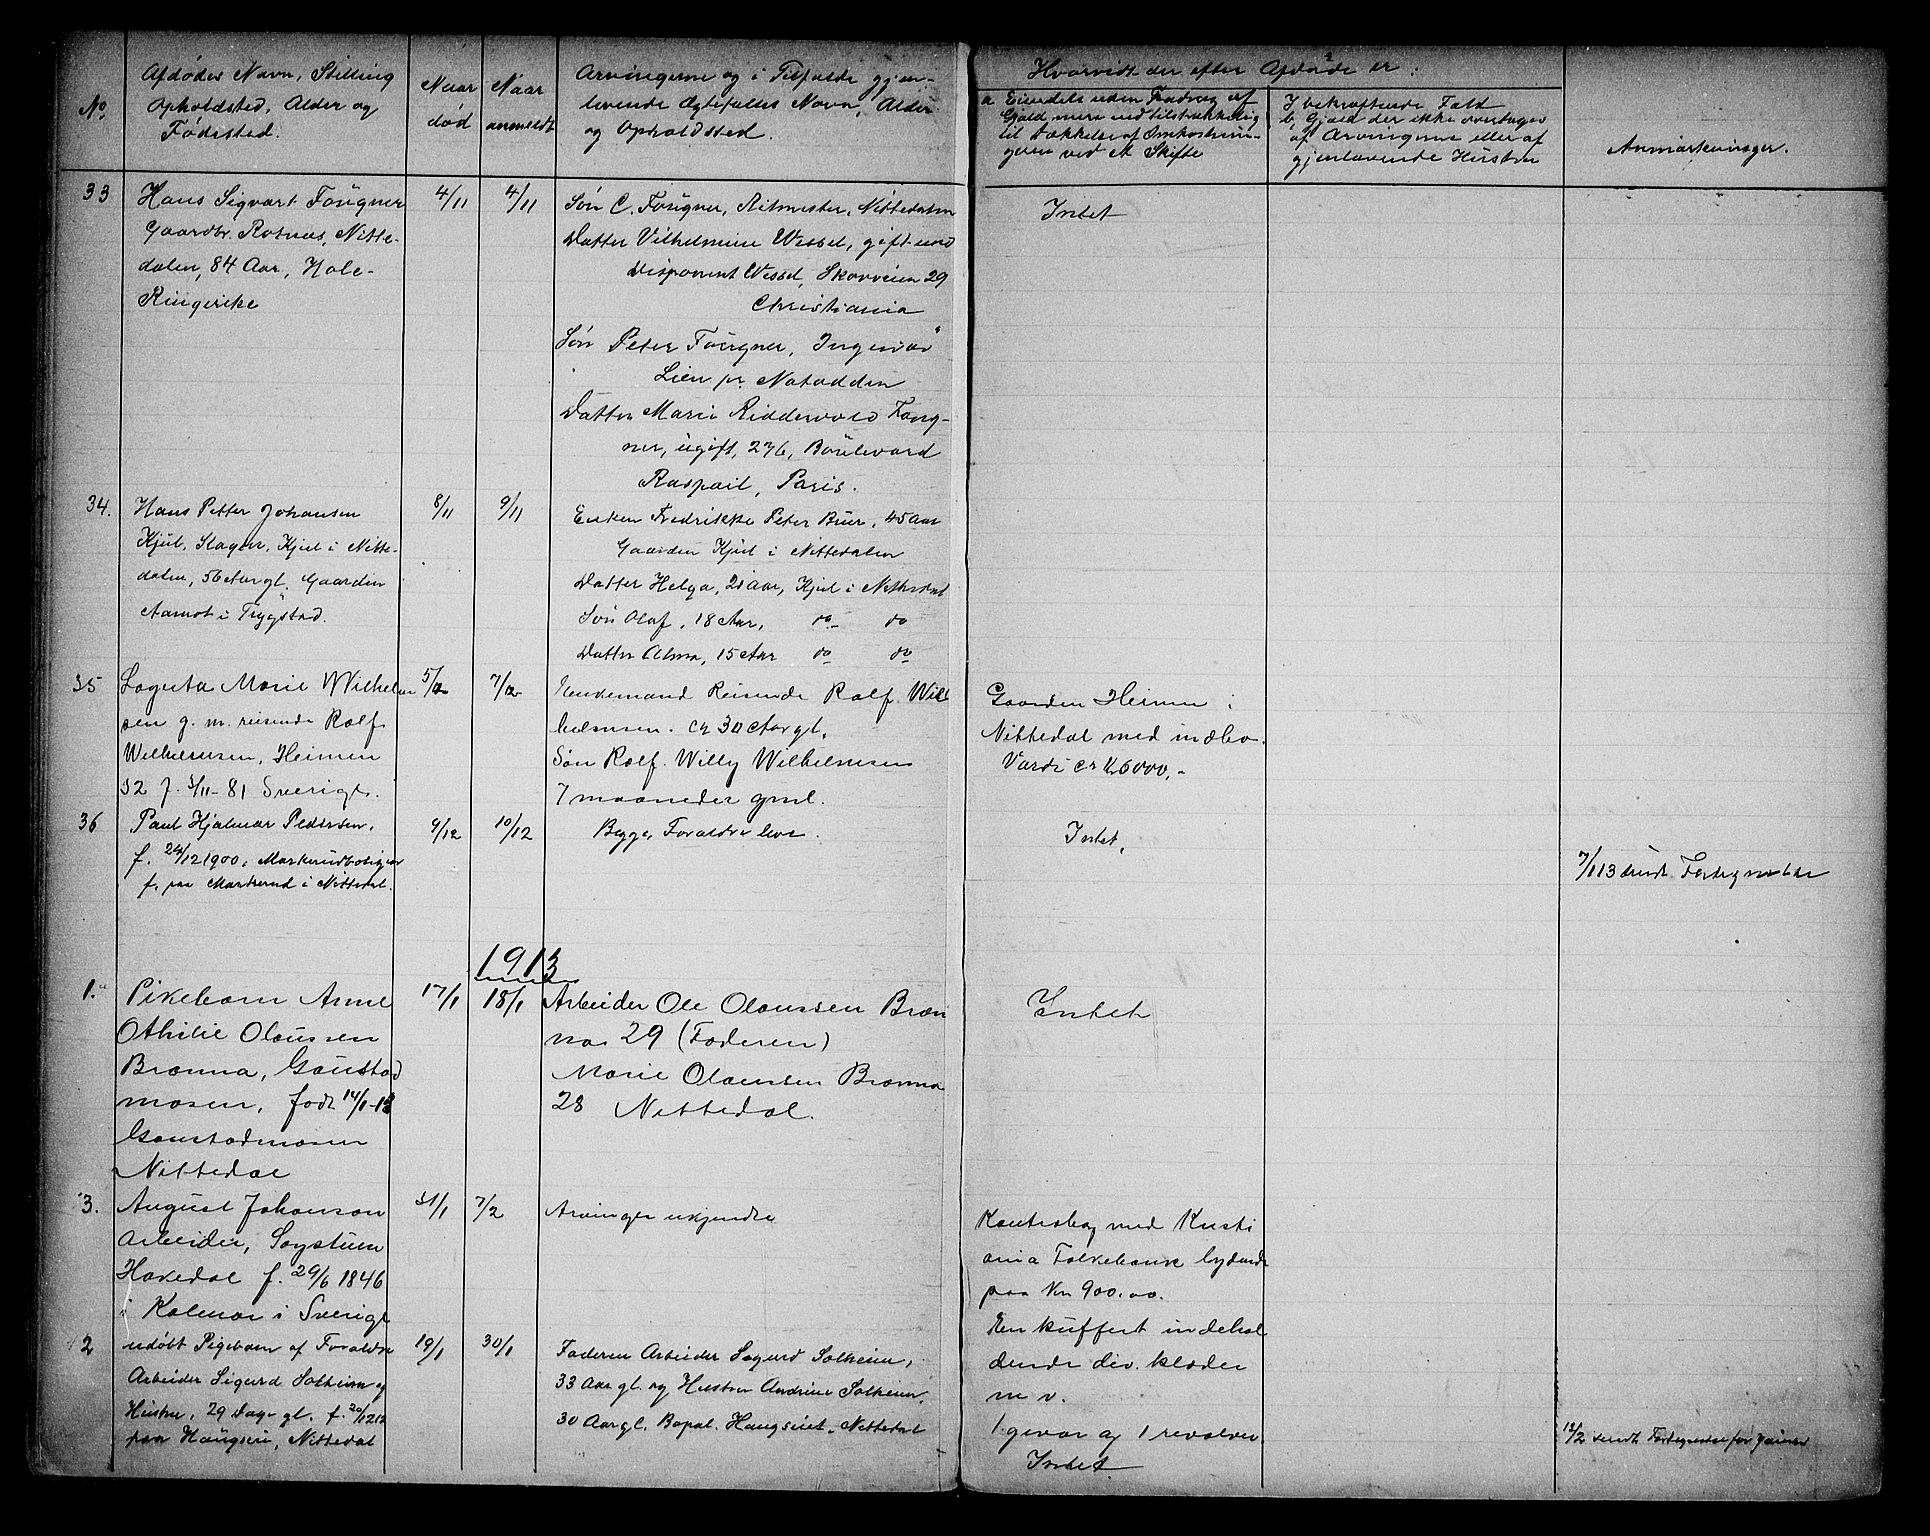 No.
Afdødes Navn, Stilling
Opholdsted, Alder og
Fødested.
Naar
død
Naar
anmeldt
Arvingerne og i Tilfælde gjen-
levende Ægtefælles Navn, Alder
og Opholdssted.
Hvorvidt der efter Afdøde er:
a Eiendele uden Fradrag af
Gjæld mere end tilstrækkelig
til Dækkelse af Omkostnin-
gerne ved et Skifte
I bekræftende Fald
b, Gjæld der ikke overtages
af Arvingerne eller af
gjenlevende Hustru
Anmærkninger.
33
Hans Sigvart Fougner
Gaardbr. Rotnæs, Nitte-
dalen, 84 Aar, Hole-
Ringerike
4/11
4/11
Søn C. Fougner, Ritmester, Nittedalen
Datter Vilhelmine Wessel, gift med
Disponent Wessel, Skovveien 29
Christiania
Søn Peter Fougner, Ingeniør
Lien pr. Notodden
Datter Marie Riddervold Foug-
ner, ugift, 276, Boulevard
Raspail, Paris.
Intet
34.
Hans Petter Johansen
Kjul, Kjul i Nitte-
dalen, 56 Aar gl. Gaarden
Aamot i Trygstad.
8/11
9/11
Enken Fredrikke Peter 45 Aar
Gaarden Kjul i Nittedalen
Datter Helga, 21 Aar, Kjul i Nittedal
Søn Olaf, 18 Aar, do do
Datter Alma, 15 Aar do do
35
Lagerta Marie Wilhelm
sen g. m. reisende Rolf
Wilhelmsen, Heimen
32 f. 3/11-81 Sverige.
5/12
7/12
Enkemand Reisende Rolf Wil
helmsen. ca 30 Aar gl.
Søn Rolf Willy Wilhelmsen
7 maaneder gml.
Gaarden Heimen i
Nittedal med indbo.
Værdi ca 6000,-
36
Paul Hjalmar Pedersen,
f. 24/12 1900,
f. paa Markerud i Nittedal.
9/12
10/12
Begge Forældre leve.
Intet,
7/1 13 sendt Fortegnelse
1913
1.
Pikebarn Anne
Othilie Olaussen
Brænna, Gaustad
mosen, født 14/1-13
Gaustadmosen
Nittedal
17/1
18/1
Arbeider Ole Olaussen Bræn
na 29 (Faderen)
Marie Olaussen Brænna
28 Nittedal.
Intet
3.
August Johanson
Arbeider, Sagstuen
Hakedal f. 29/6 1846
i Kalmar i Sverige
31/1
7/2
Arvinger ukjendte
Kontrabog med Kristi
ania Folkebank lydende
paa Kr 900.00.
En kuffert indehol
dende div. klæder
m v.
1 gevær og 1 revolver
2
udøbt Pigebarn af Forældre
Arbeider Sigurd Solheim og
Hustru, 29 Dage gl. f. 20/12 12
paa Haugseie, Nittedal
19/1
30/1
Faderen Arbeider Sigurd Solheim,
33 Aar gl. og Hustru Andrine Solheim,
30 Aar gl. Bopæl. Haugseiet, Nittedal
Intet
12/2 sendt Fortegnelse for Januar